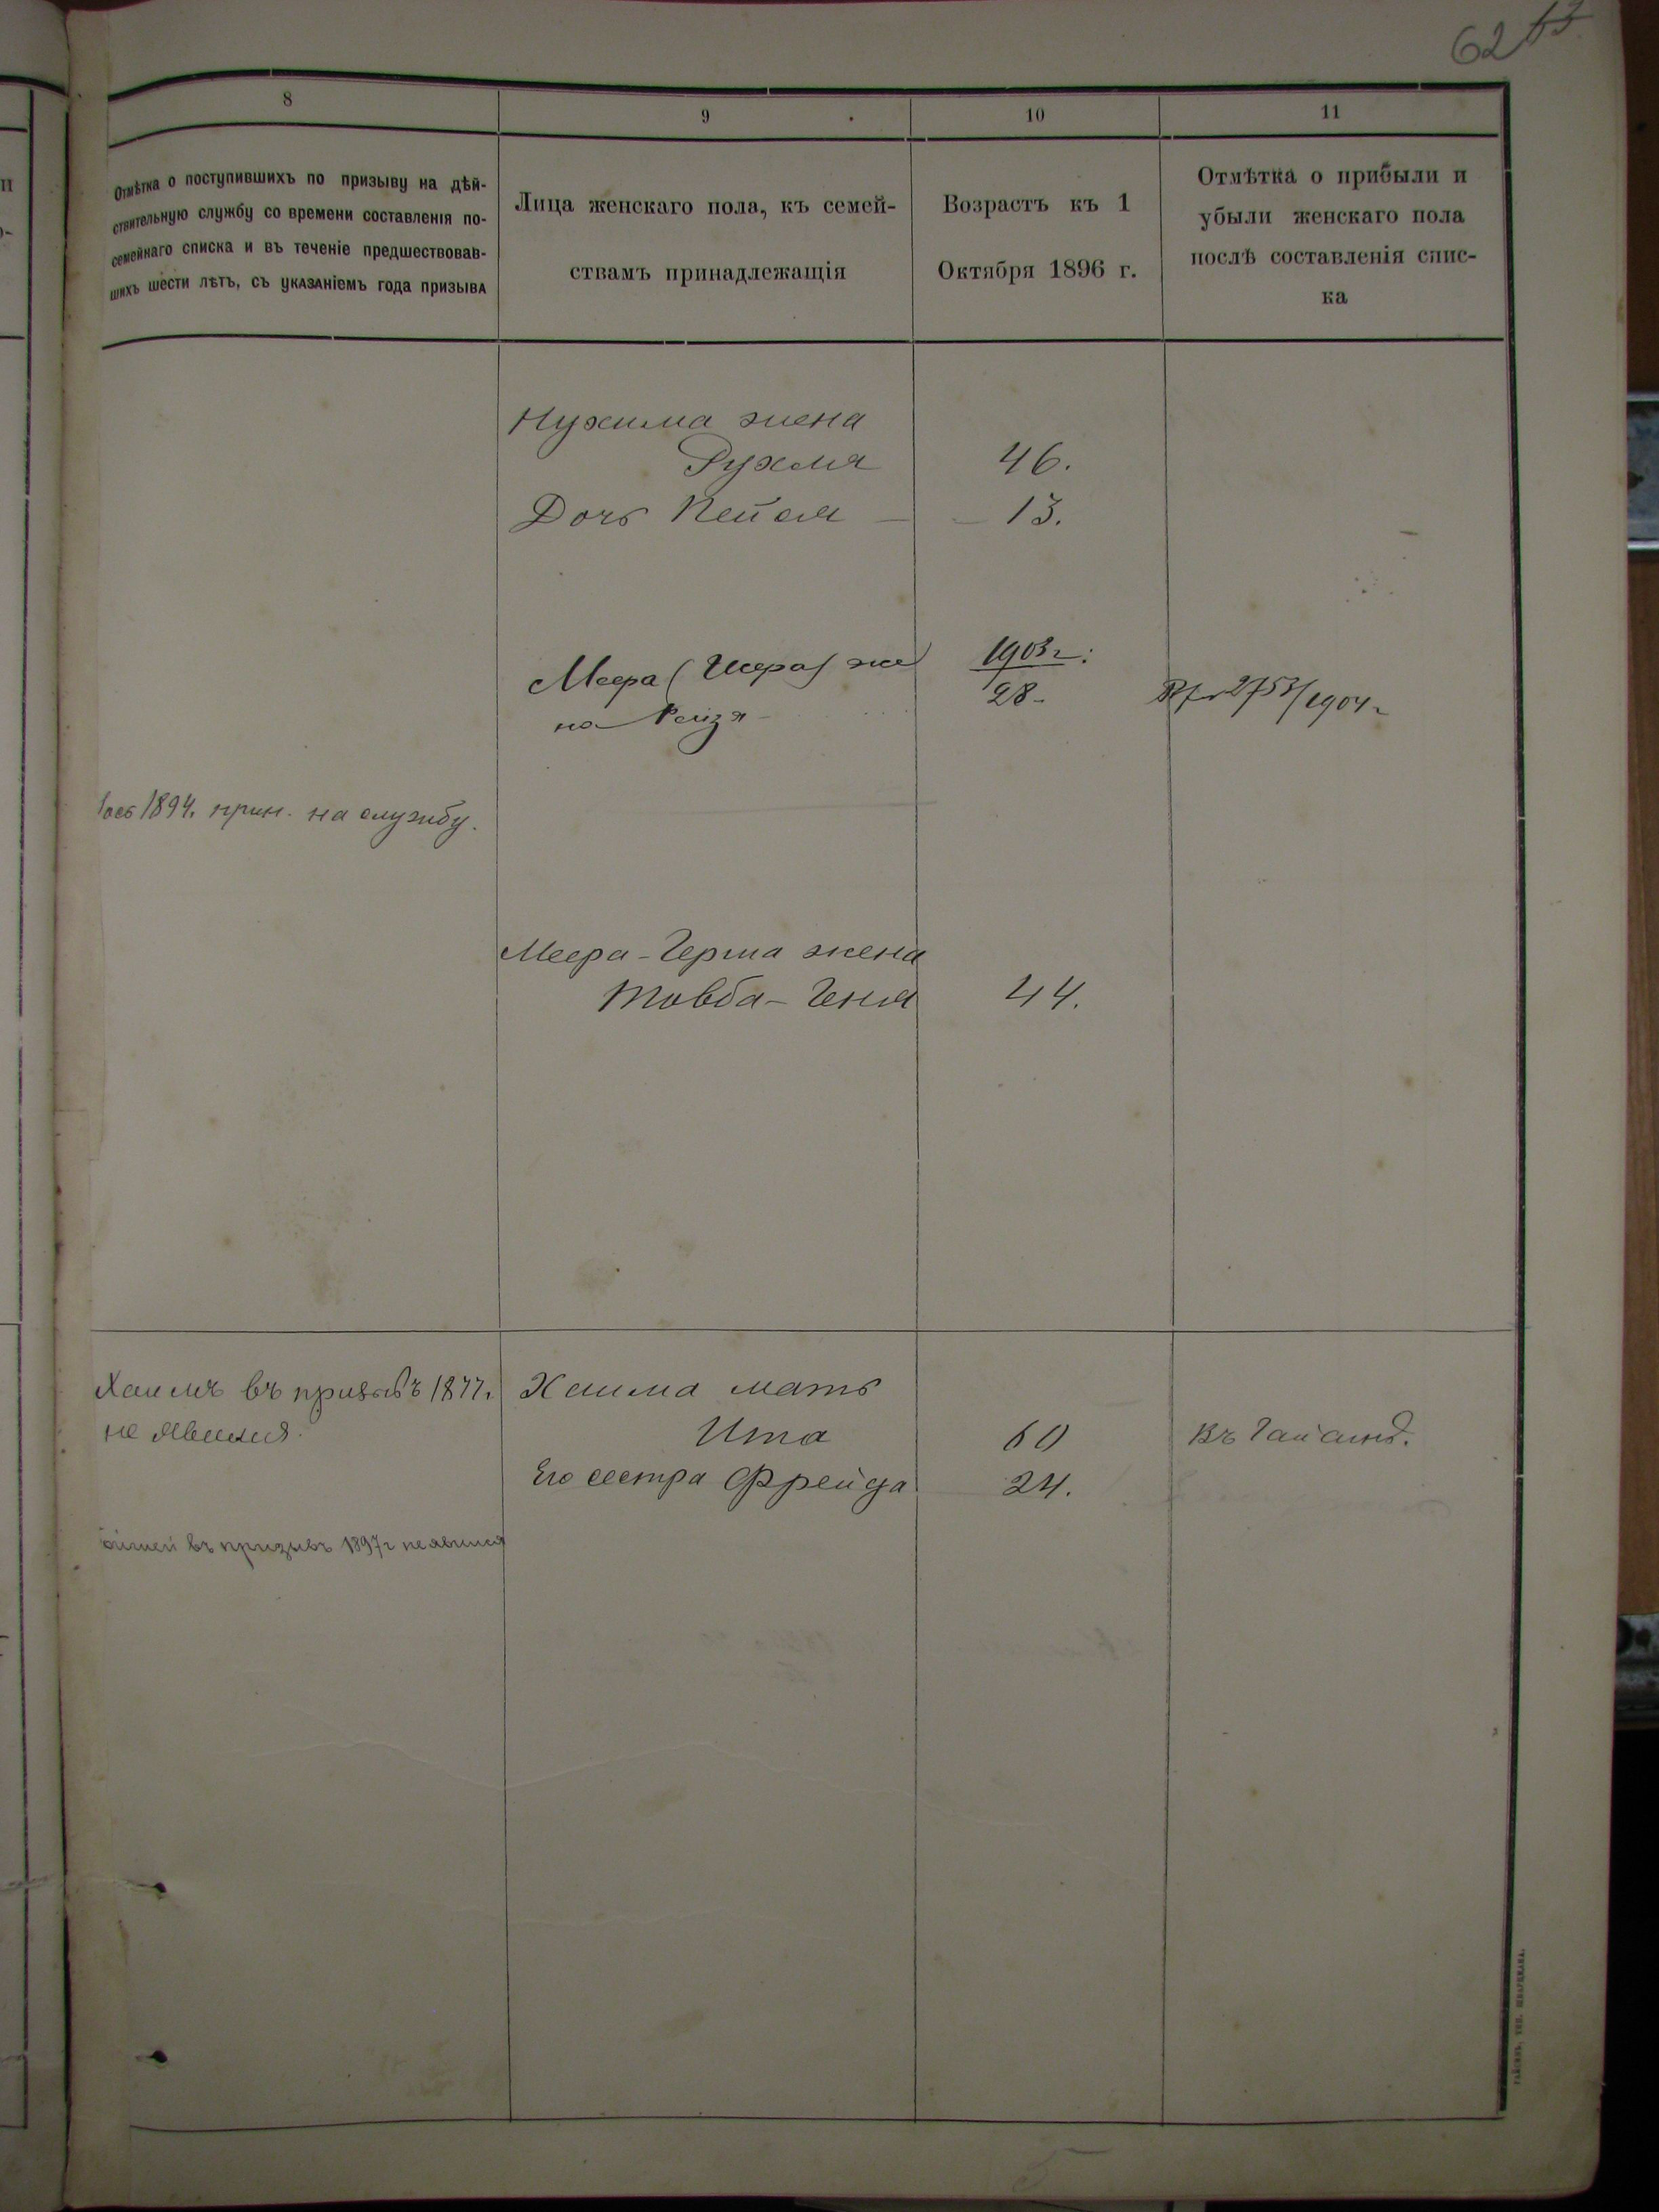 62
8
9
10
11
Отмѣтка о поступившихъ по призыву на дѣй-
ствительную службу со времени составленія по-
семейнаго списка и въ теченіе предшествовав-
шихъ шести лѣтъ, съ указаніемъ года призыва
Лица женскаго пола, къ семей-
ствамъ принадлежащія
Возрастъ къ 1
Октября 1896 г.
Отмѣтка о прибыли и
убыли женскаго пола
послѣ составленія спис-
ка
Нухима жена
Рухля 46.
Дочь Пейся — 13.
Меера ( же 1903 г.
на Рейзя 28 2753/1904 г
1894. прин. на службу.
Меера-Герша жена
Товба-Геня 44.
Хаимъ въ призывъ 1877.
не явился.
Хаима мать
Ита 60 Въ
Его сестра Фрейда 24.
въ призывъ 1897 г не явился